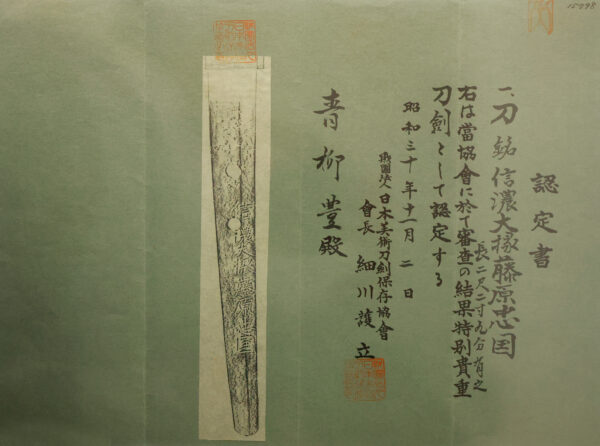 認定書
一、刀 銘 信濃大掾藤原忠国
長二尺二寸九分有之
右は當協會に於て審査の結果特別貴重
刀劍として認定する
昭和三十年十一月二日
財團法人日本美術刀劍保存協會
會長 細川護立
青柳豊殿